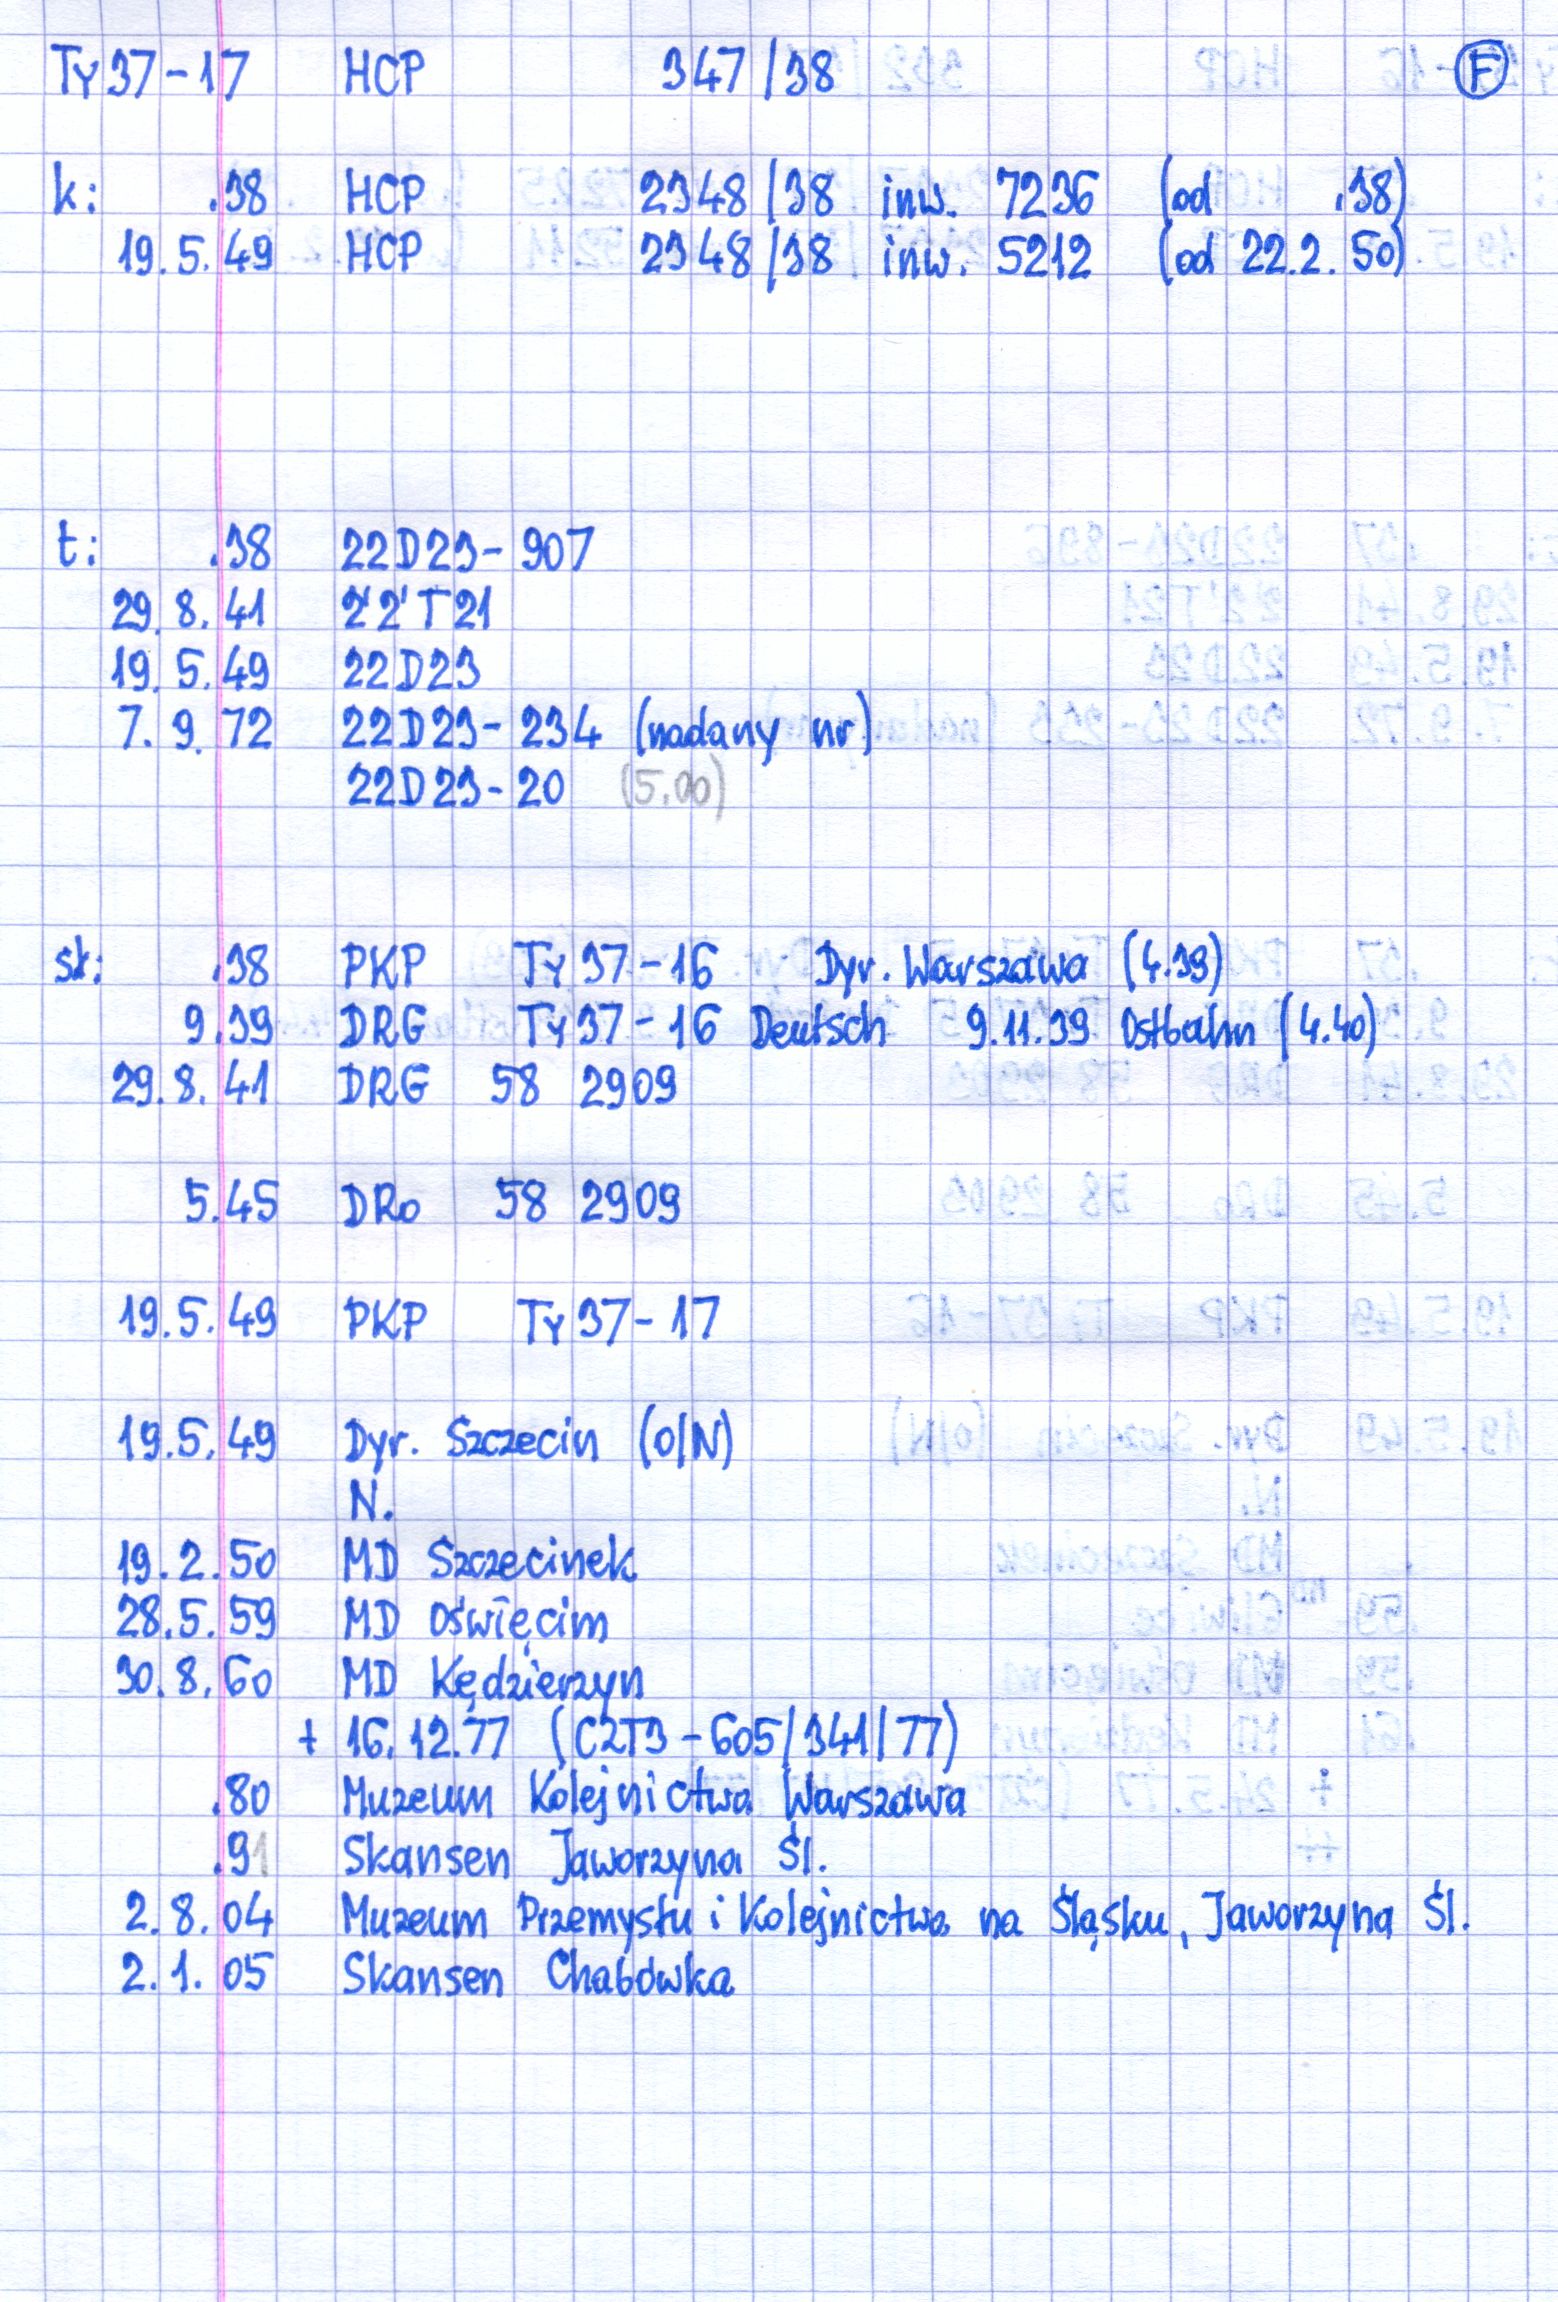 Ty37-17 HCP 347/38 F
k: .38 HCP 2348/38 inw. 7236 (od .38)
19.5.49 HCP 2348/38 inw. 5212 (od 22.2.50)
t: .38 22D23-907
29.8.41 2'2'T21
19.5.49 22D23
7.9.72 22D23-234 (nadany nr)
22D23-20 (5.00)
sł: .38 PKP Ty37-16 Dyr. Warszawa (4.39)
9.39 DRG Ty37-16 Deutsch 9.11.39 Ostbahn (4.40)
29.8.41 DRG 58 2909
5.45 DRo 58 2909
19.5.49 PKP Ty37-17
19.5.49 Dyr. Szczecin (O/N)
N.
19.2.50 MD Szczecinek
28.5.59 MD Oświęcim
30.8.60 MD Kędzierzyn
+ 16.12.77 (CZT3-605/341/77)
.80 Muzeum Kolejnictwa Warszawa
.91 Skansen Jaworzyna Śl.
2.8.04 Muzeum Przemysłu i Kolejnictwa na Śląsku, Jaworzyna Śl.
2.1.05 Skansen Chabówka